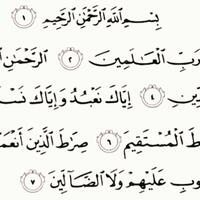 بِسْمِ اللَّهِ الرَّحْمَٰنِ الرَّحِيمِ ١
رَبِّ الْعَالَمِينَ ٢ الرَّحْمَٰنِ
ـدِّينِ ٤ إِيَّاكَ نَعْبُدُ وَإِيَّاكَ نَسْـ
ـطَ الْمُسْتَقِيمَ ٦ صِرَاطَ الَّذِينَ أَنْعَمْـ
ـوبِ عَلَيْهِمْ وَلَا الضَّالِّينَ ٧